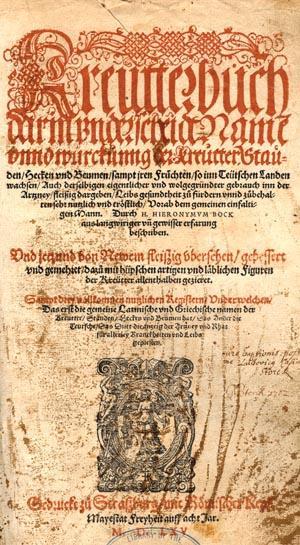 Kreutterbuch
darin underscheidt Name
unnd würckung der Kreutter Stau-
den/Hecken und Beumen/sampt jren Früchten/so inn Teütschen Landen
wachsen/Auch derselbigen eigentlicher und wolgegründter gebrauch inn der
Artzney fleißig dargeben/Leibs gesundtheit zu fürdern unnd zů behal-
ten seht nutzlich und tröstlich/Vorab dem gemeinen einfalti-
gen Mann. Durch H. HIERONYMUM BOCK
aus langwiriger uñ gewisser erfarung
beschriben.
Und jetzund von Newem fleißig übersehen/gebessert
und gemehret/dazů mit hüpschen artigen und läblichen Figuren
der Kreütter allenthalben gezieret.
Sampt drey vollkomnen nutzlichen Registern/Under welchen/
Das erst die gemeine Latinische und Griechische namen der
Kreutter/Stauden/Hecken und Beumen hat/Das Ander die
Teutsche/Das Dritt die anzeig der Artzney und Rhat
für allerley Kranckheiten und Leibs
gepresten.
Gedruckt zů Straßburg/mit Römischer Keys.
Mayestat Freyheit auff acht Jar.
LIBRARY